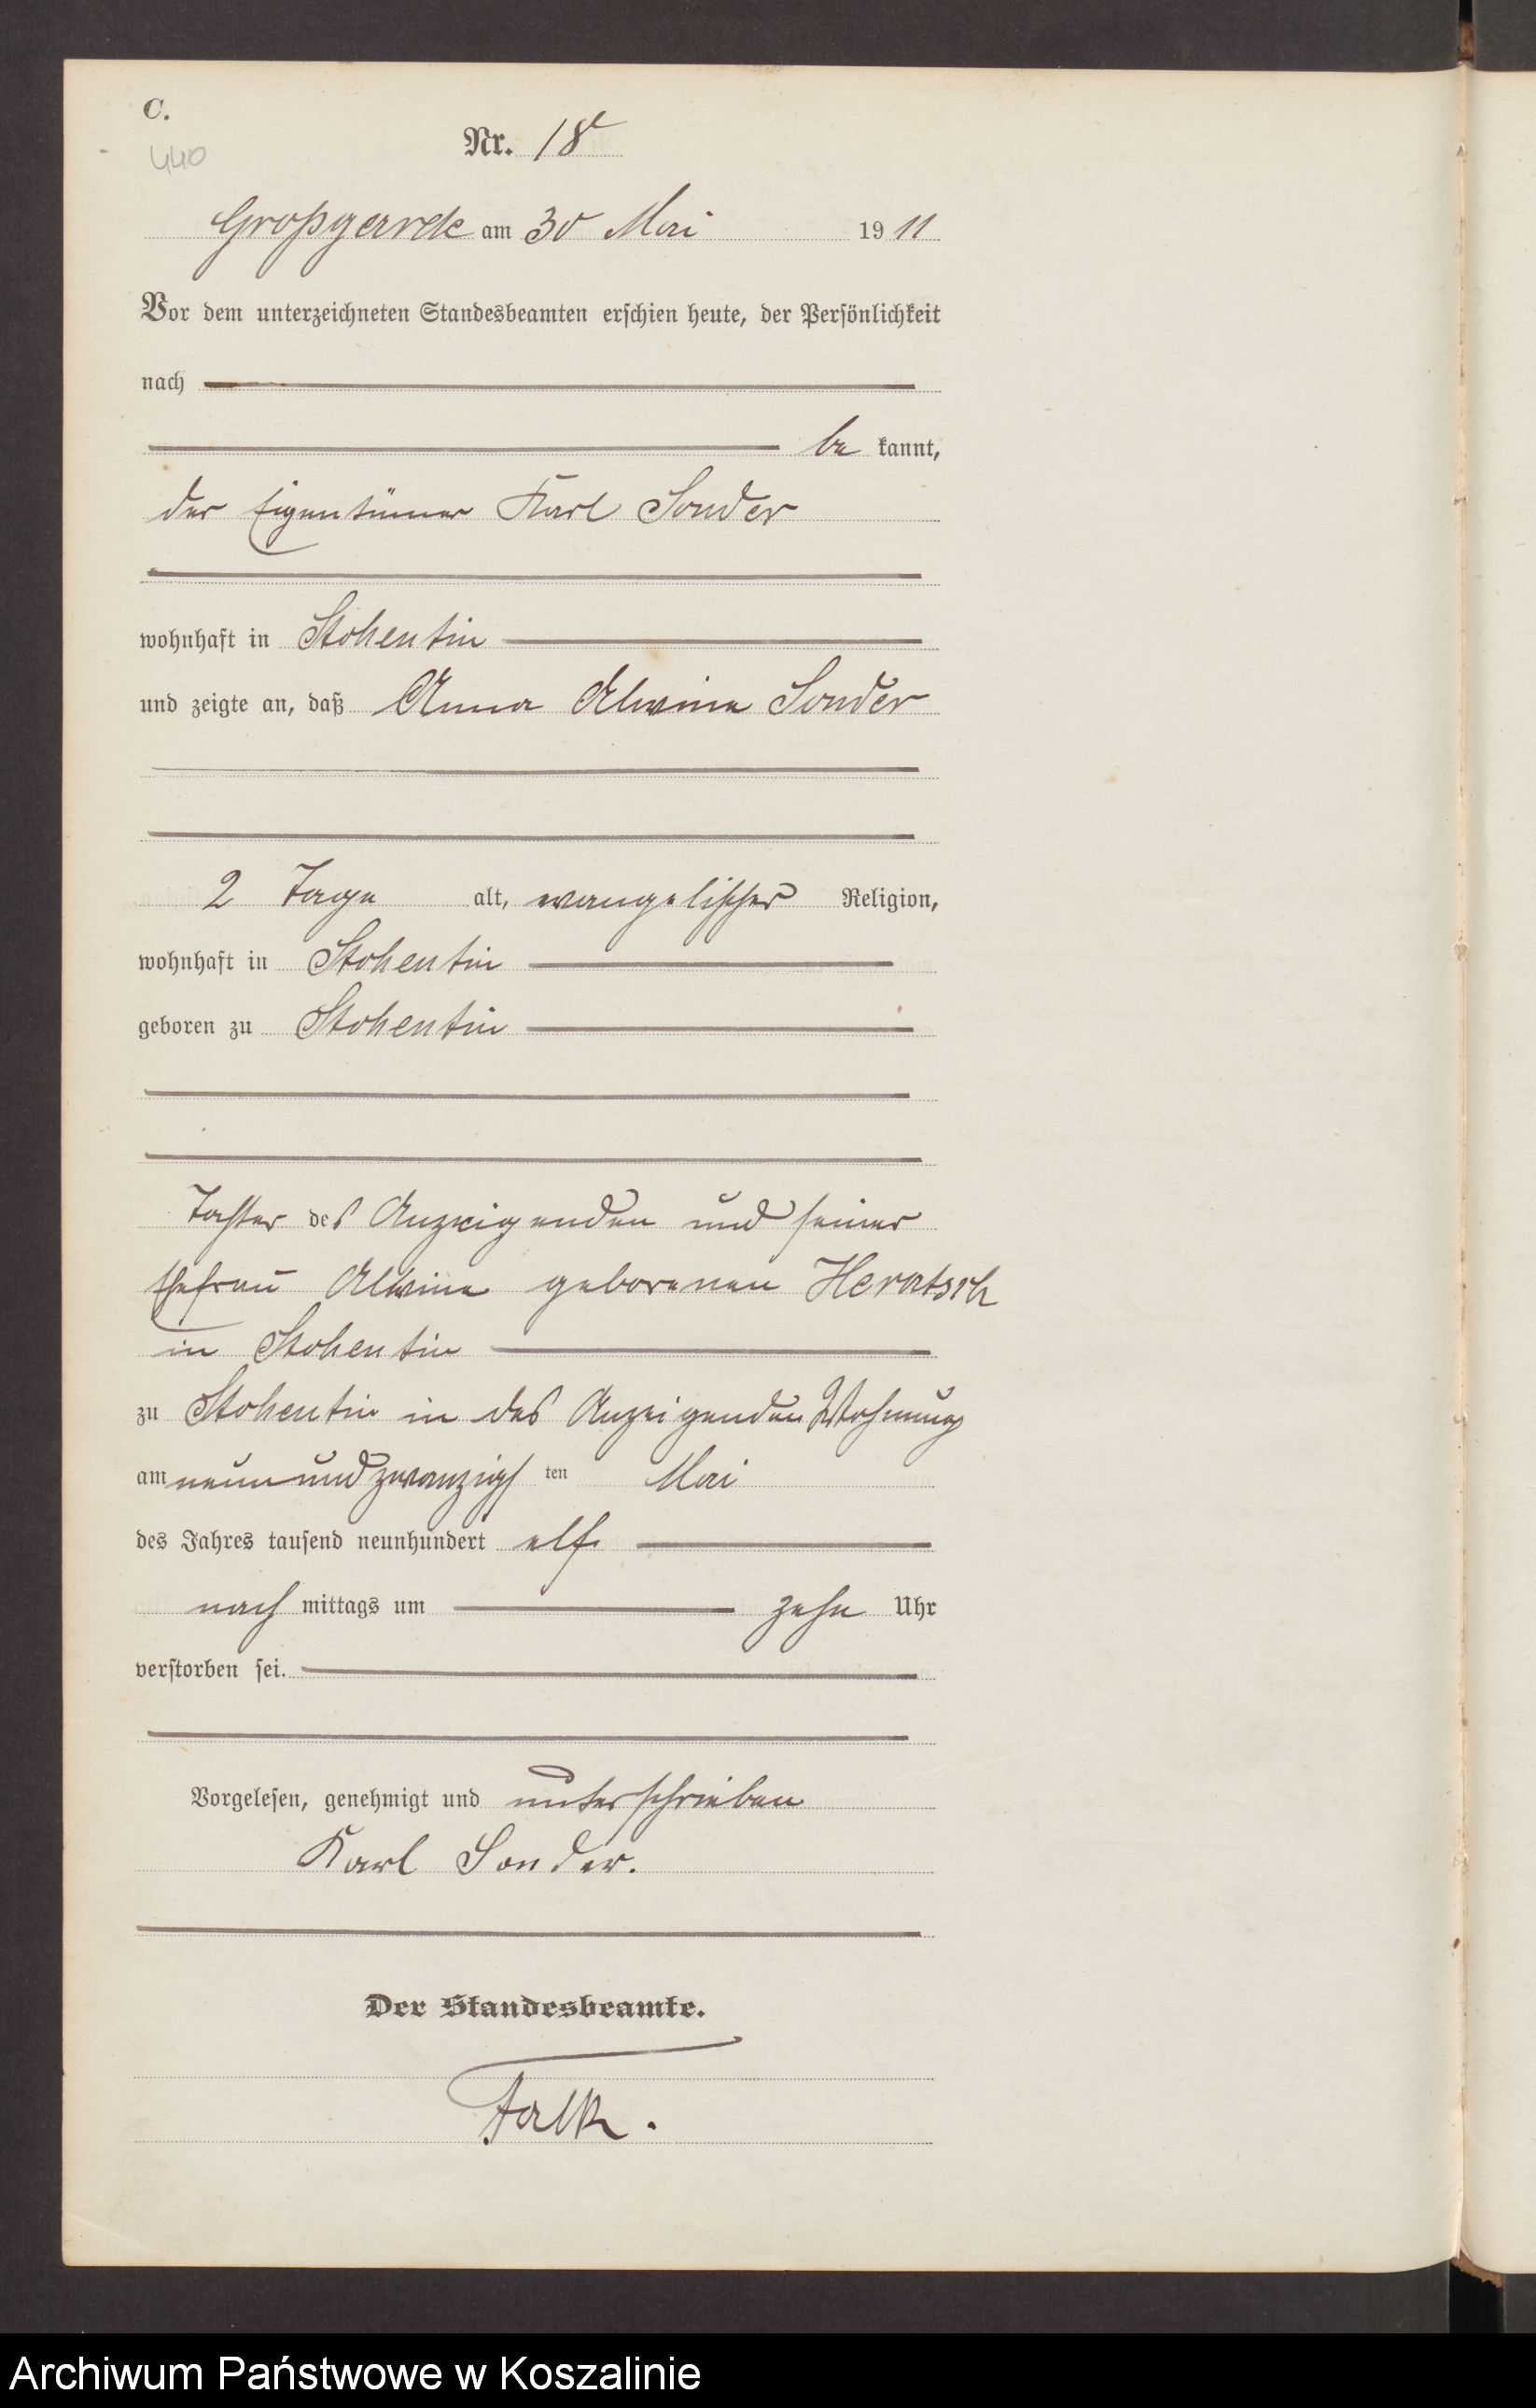 C.
440
Nr. 18
Großgarde am 30 Mai 1911
Vor dem unterzeichneten Standesbeamten erschien heute, der Persönlichkeit
nach
be kannt,
der Eigentümer Karl Sonder
wohnhaft in Stohentin
und zeigte an, daß Anna Alwine Sonder
2 Tage alt, evangelischer Religion,
wohnhaft in Stohentin
geboren zu Stohentin
Tochter des Anzeigenden und seiner
Ehefrau Alwine geborenen Heratsch
in Stohentin
zu Stohentin in des Anzeigenden Wohnung
am neunundzwanzigsten Mai
des Jahres tausend neunhundert elf
nach mittags um zehn Uhr
verstorben sei.
Vorgelesen, genehmigt und unterschrieben
Karl Sonder.
Der Standesbeamte.
Falk.
Archiwum Państwowe w Koszalinie